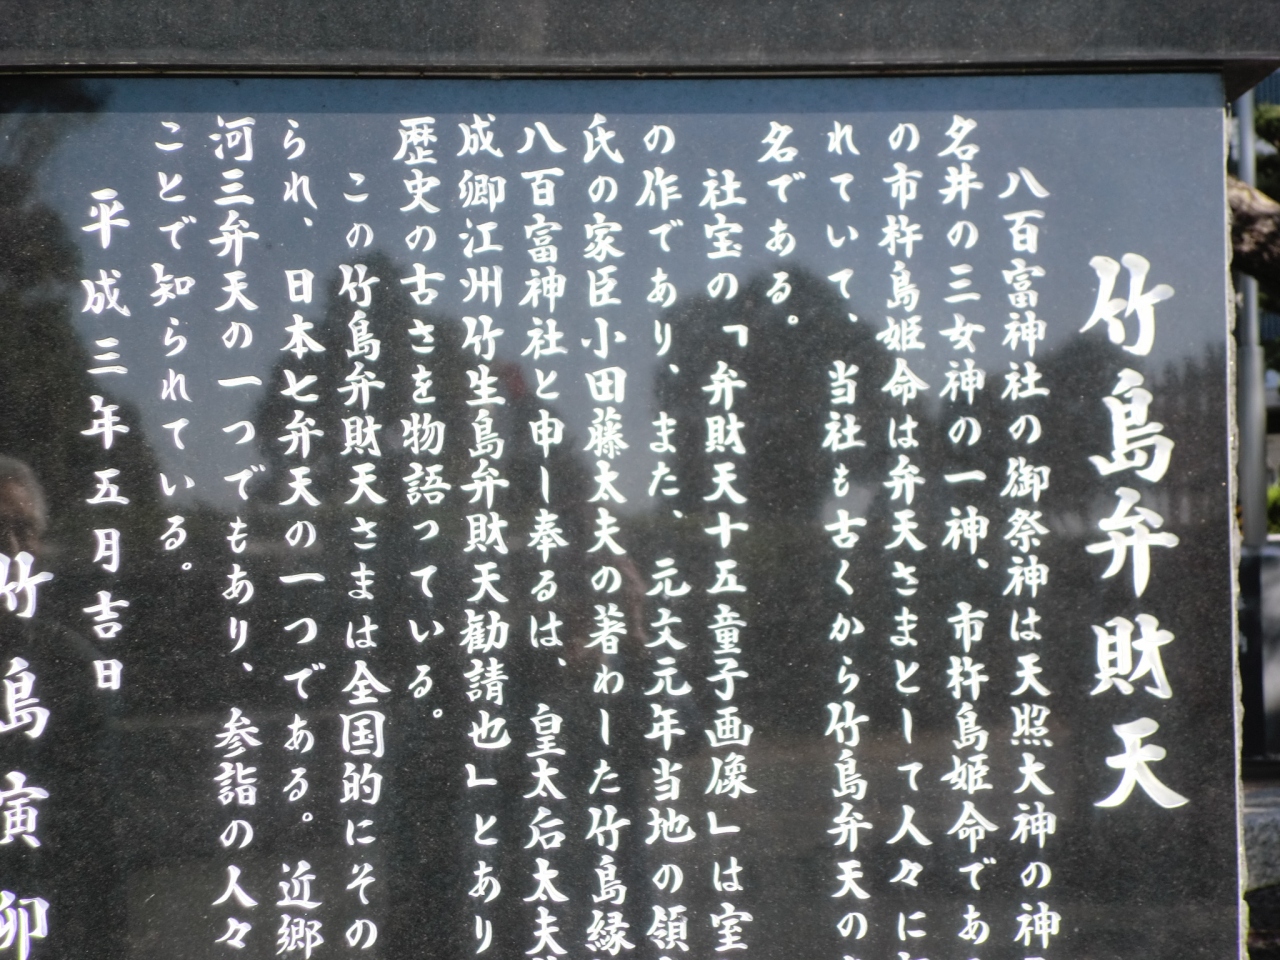 竹島弁財天
八百富神社の御祭神は天照大神の神
名井の三女神の一神、市杵島姫命であ
の市杵島姫命は弁天さまとして人々に
れていて、当社も古くから竹島弁天の
名である。
社宝の「弁財天十五童子画像」は室
の作であり、また、元文元年当地の領
氏の家臣小田藤太夫の著わした竹島縁
八百富神社と申し奉るは、皇太后太夫
成卿江州竹生島弁財天勧請也」とあり
歴史の古さを物語っている。
この竹島弁財天さまは全国的にその
られ、日本七弁天の一つである。近郷
河三弁天の一つでもあり、参詣の人々
ことで知られている。
平成三年五月吉日
竹島寅卯